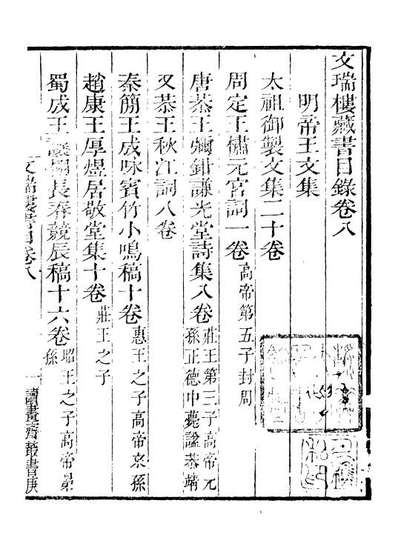 文瑞樓藏書目錄卷八
明帝王文集
太祖御製文集二十卷
周定王橚元宮詞一卷 高帝第五子封周
唐恭王彌鉗謙光堂詩集八卷 莊王第三子高帝元孫正德中薨諡恭靖
又恭王秋江詞八卷
秦簡王成咏賓竹小鳴稿十卷 惠王之子高帝來孫
趙康王厚煜居敬堂集十卷 莊王之子
蜀成王讓栩長春競辰稿十六卷 昭王之子高帝第 孫
文瑞樓書目卷八
一
讀畫齋叢書庚